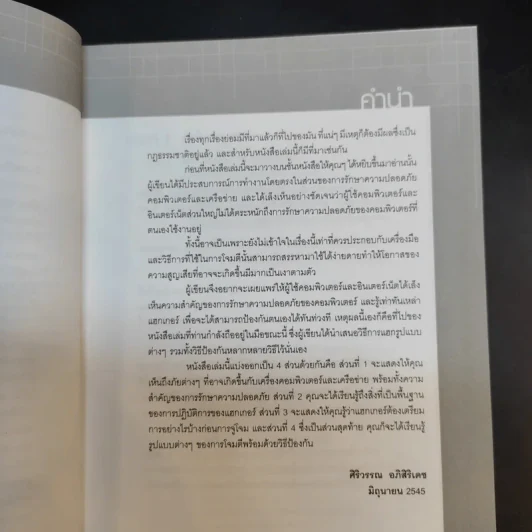 คำนำ
เรื่องทุกเรื่องย่อมมีที่มาแล้วก็ที่ไปของมัน ที่แน่ๆ มีเหตุก็ต้องมีผลซึ่งเป็น
กฎธรรมชาติอยู่แล้ว และสำหรับหนังสือเล่มนี้ก็มีที่มาเช่นกัน
ก่อนที่หนังสือเล่มนี้จะมาวางบนชั้นหนังสือให้คุณๆ ได้หยิบขึ้นมาอ่านนั้น
ผู้เขียนได้มีประสบการณ์การทำงานโดยตรงในส่วนของการรักษาความปลอดภัย
คอมพิวเตอร์และเครือข่าย และได้เล็งเห็นอย่างชัดเจนว่าผู้ใช้คอมพิวเตอร์และ
อินเตอร์เน็ตส่วนใหญ่ไม่ได้ตระหนักถึงการรักษาความปลอดภัยของคอมพิวเตอร์ที่
ตนเองใช้งานอยู่
ทั้งนี้อาจเป็นเพราะยังไม่เข้าใจในเรื่องนี้เท่าที่ควรประกอบกับเครื่องมือ
และวิธีการที่ใช้ในการโจมตีนั้นสามารถสรรหามาใช้ได้ง่ายดายทำให้โอกาสของ
ความสูญเสียที่อาจจะเกิดขึ้นมีมากเป็นเงาตามตัว
ผู้เขียนจึงอยากจะเผยแพร่ให้ผู้ใช้คอมพิวเตอร์และอินเตอร์เน็ตได้เล็ง
เห็นความสำคัญของการรักษาความปลอดภัยของคอมพิวเตอร์ และรู้เท่าทันเหล่า
แฮกเกอร์ เพื่อจะได้สามารถป้องกันตนเองได้ทันท่วงที เหตุผลนี้เองก็คือที่ไปของ
หนังสือเล่มที่ท่านกำลังถืออยู่ในมือขณะนี้ ซึ่งผู้เขียนได้นำเสนอวิธีการแฮกรูปแบบ
ต่างๆ รวมทั้งวิธีป้องกันหลากหลายวิธีไว้นั่นเอง
หนังสือเล่มนี้แบ่งออกเป็น 4 ส่วนด้วยกันคือ ส่วนที่ 1 จะแสดงให้คุณ
เห็นถึงภัยต่างๆ ที่อาจเกิดขึ้นกับเครื่องคอมพิวเตอร์และเครือข่าย พร้อมทั้งความ
สำคัญของการรักษาความปลอดภัย ส่วนที่ 2 คุณจะได้เรียนรู้ถึงสิ่งที่เป็นพื้นฐาน
ของการปฏิบัติการของแฮกเกอร์ ส่วนที่ 3 จะแสดงให้คุณรู้ว่าแฮกเกอร์ต้องเตรียม
การอย่างไรบ้างก่อนการจู่โจม และส่วนที่ 4 ซึ่งเป็นส่วนสุดท้าย คุณก็จะได้เรียนรู้
รูปแบบต่างๆ ของการโจมตีพร้อมด้วยวิธีป้องกัน
ศิริวรรณ อภิสิริเดช
มิถุนายน 2545